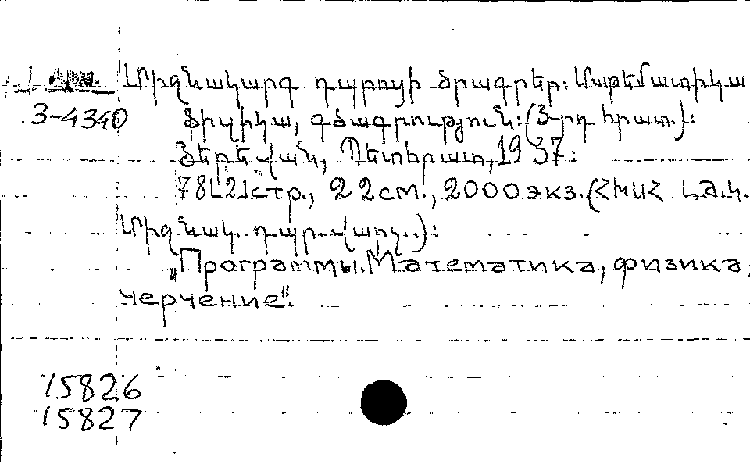 Միջնակարգ դպրոցի ծրագրեր: Մաթեմատիկա
3-4340 ֆիզիկա, գծագրություն: (3-րդ հրատ.):
Յերևան, Պետհրատ, 1937:
78[2]стр., 22см., 2000экз. (ՀԽՍՀ Լ.ժ.կ.
Միջնակ. դպր. վարչ.):
„Программы. Математика, физика,
черчение".
15826
15827